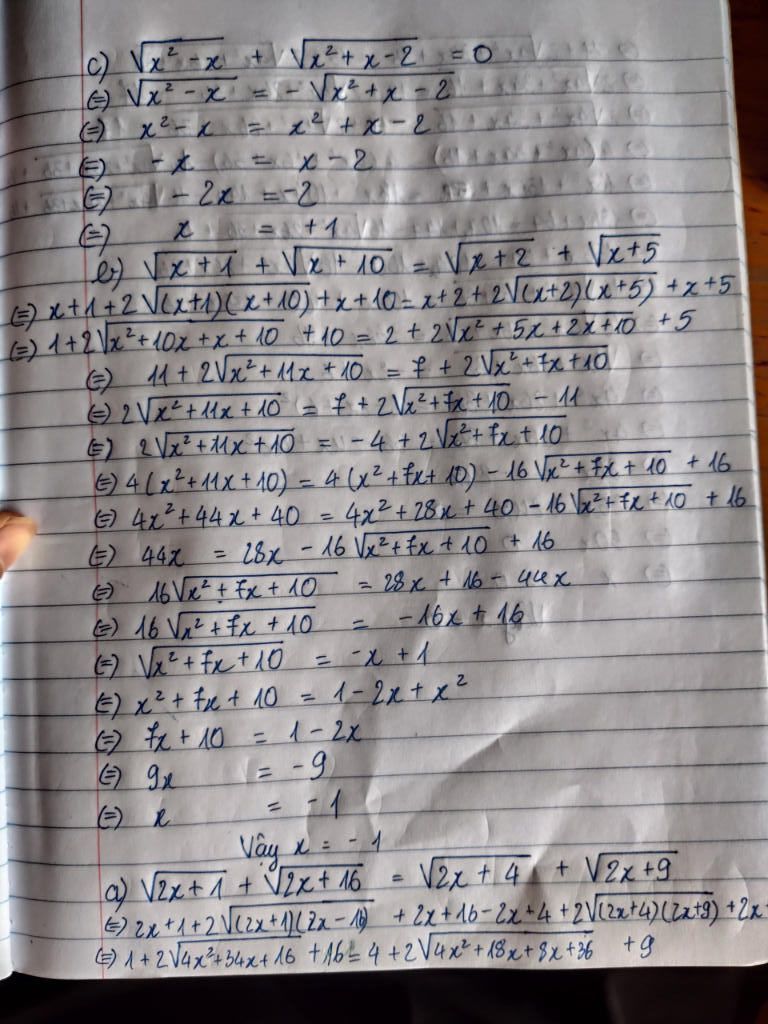 c) √(x² - x) + √(x² + x - 2) = 0
(=) √(x² - x) = - √(x² + x - 2)
(=) x² - x = x² + x - 2
(=) - x = x - 2
(=) - 2x = -2
(=) x = + 1
b) √(x + 1) + √(x + 10) = √(x + 2) + √(x + 5)
(=) x + 1 + 2√((x+1)(x+10)) + x + 10 = x + 2 + 2√((x+2)(x+5)) + x + 5
(=) 1 + 2√(x² + 10x + x + 10) + 10 = 2 + 2√(x² + 5x + 2x + 10) + 5
(=) 11 + 2√(x² + 11x + 10) = 7 + 2√(x² + 7x + 10)
(=) 2√(x² + 11x + 10) = 7 + 2√(x² + 7x + 10) - 11
(=) 2√(x² + 11x + 10) = - 4 + 2√(x² + 7x + 10)
(=) 4(x² + 11x + 10) = 4(x² + 7x + 10) - 16√(x² + 7x + 10) + 16
(=) 4x² + 44x + 40 = 4x² + 28x + 40 - 16√(x² + 7x + 10) + 16
(=) 44x = 28x - 16√(x² + 7x + 10) + 16
(=) 16√(x² + 7x + 10) = 28x + 16 - 44x
(=) 16√(x² + 7x + 10) = -16x + 16
(=) √(x² + 7x + 10) = -x + 1
(=) x² + 7x + 10 = 1 - 2x + x²
(=) 7x + 10 = 1 - 2x
(=) 9x = - 9
(=) x = - 1
Vậy x = - 1
a) √(2x + 1) + √(2x + 16) = √(2x + 4) + √(2x + 9)
(=) 2x + 1 + 2√((2x+1)(2x-16)) + 2x + 16 - 2x + 4 + 2√((2x+4)(2x+9)) + 2x
(=) 1 + 2√(4x² + 34x + 16) + 16 = 4 + 2√(4x² + 18x + 8x + 36) + 9